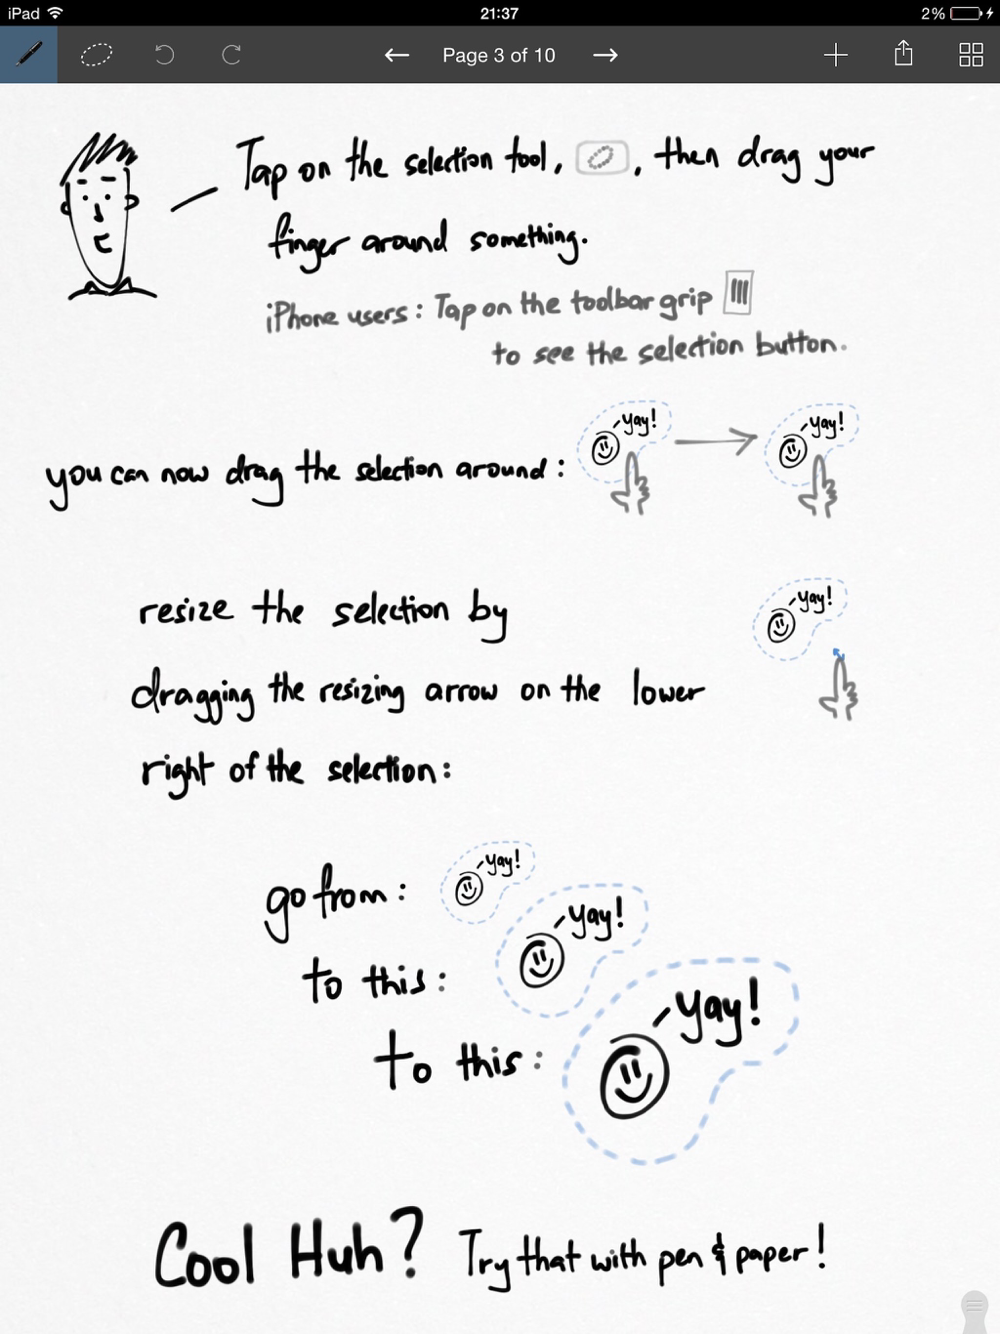 iPad 21:37 2%
Page 3 of 10
Tap on the selection tool, , then drag your
finger around something.
iPhone users: Tap on the toolbar grip
to see the selection button.
Yay! Yay!
you can now drag the selection around:
Yay!
resize the selection by
dragging the resizing arrow on the lower
right of the selection:
Yay!
go from:
Yay!
to this:
Yay!
to this:
Cool Huh? Try that with pen & paper!